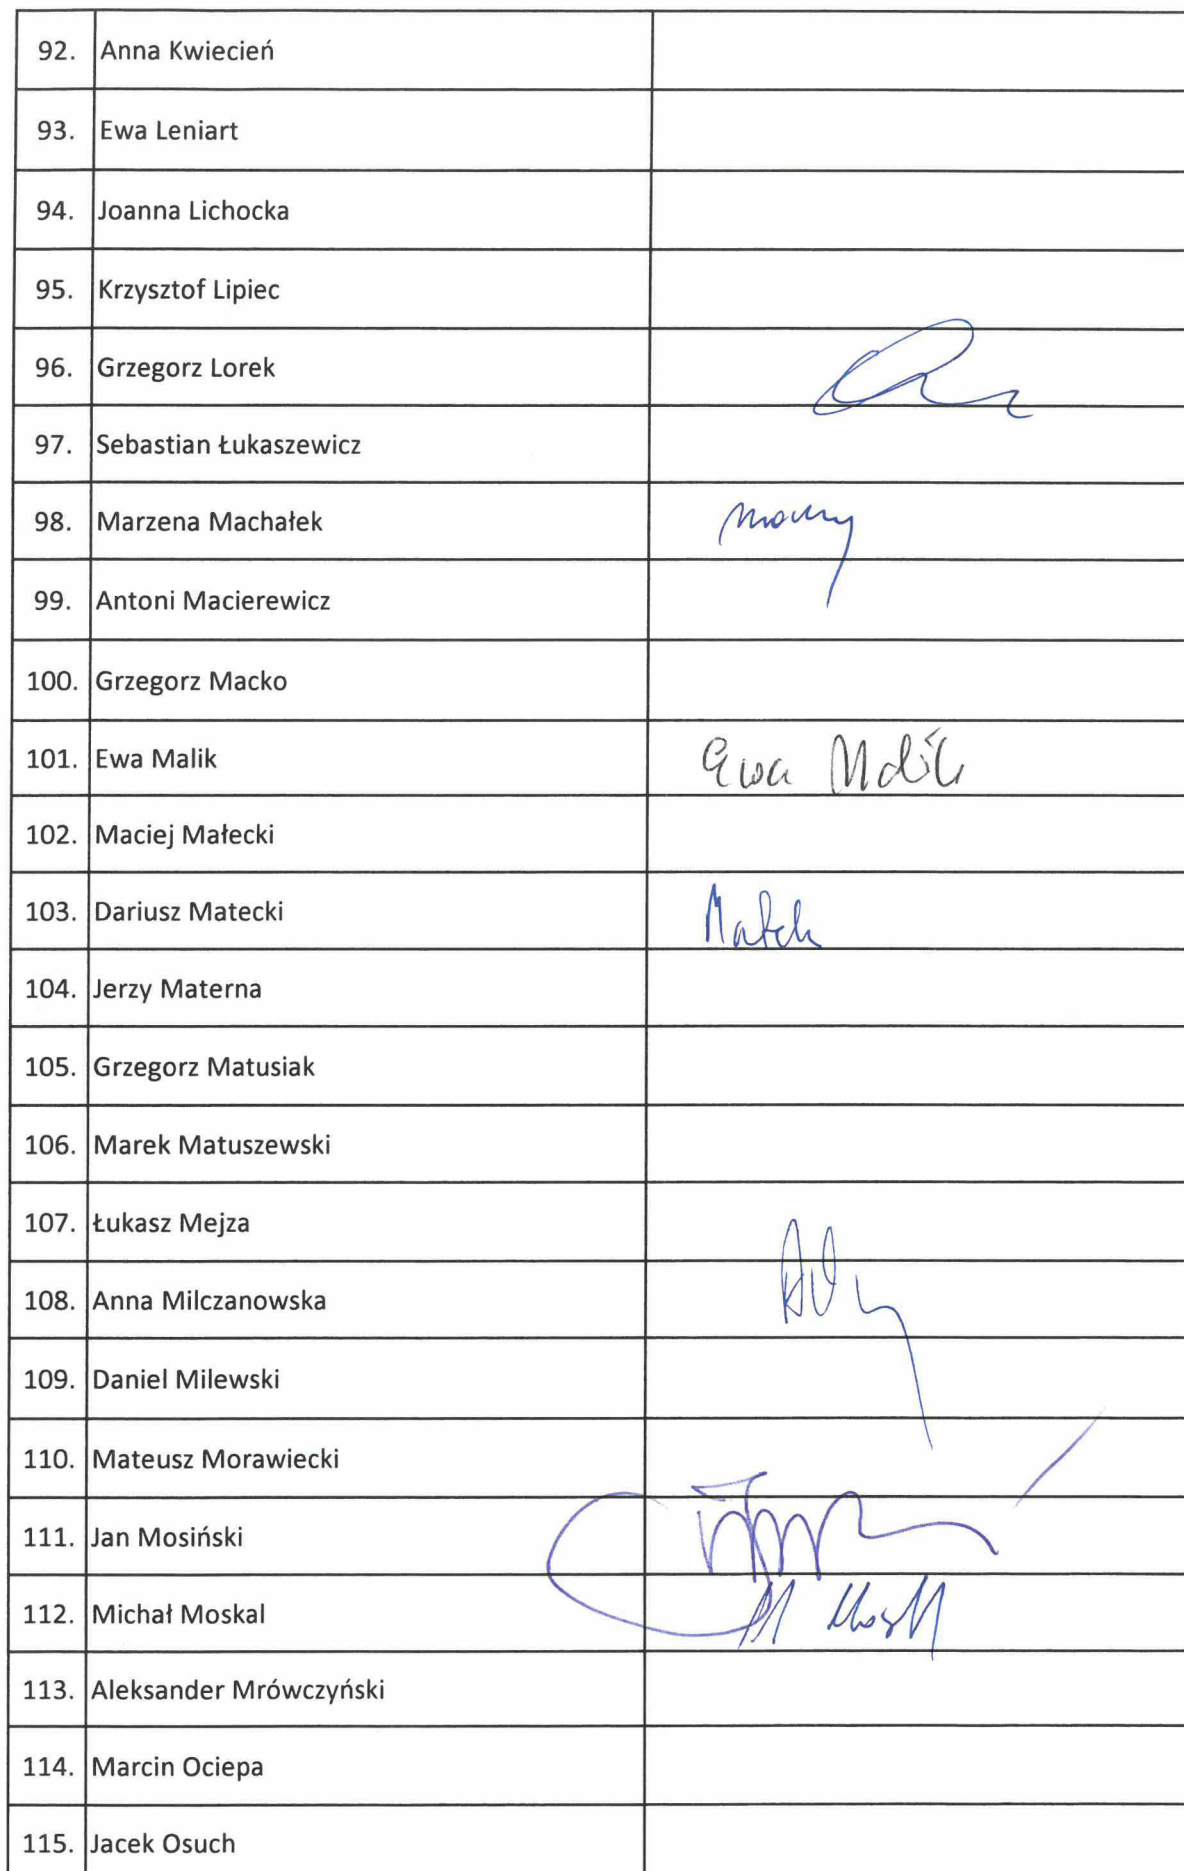 92. Anna Kwiecień
93. Ewa Leniart
94. Joanna Lichocka
95. Krzysztof Lipiec
96. Grzegorz Lorek
97. Sebastian Łukaszewicz
98. Marzena Machałek
99. Antoni Macierewicz
100. Grzegorz Macko
101. Ewa Malik Ewa Malik
102. Maciej Małecki
103. Dariusz Matecki
104. Jerzy Materna
105. Grzegorz Matusiak
106. Marek Matuszewski
107. Łukasz Mejza
108. Anna Milczanowska
109. Daniel Milewski
110. Mateusz Morawiecki
111. Jan Mosiński
112. Michał Moskal
113. Aleksander Mrówczyński
114. Marcin Ociepa
115. Jacek Osuch